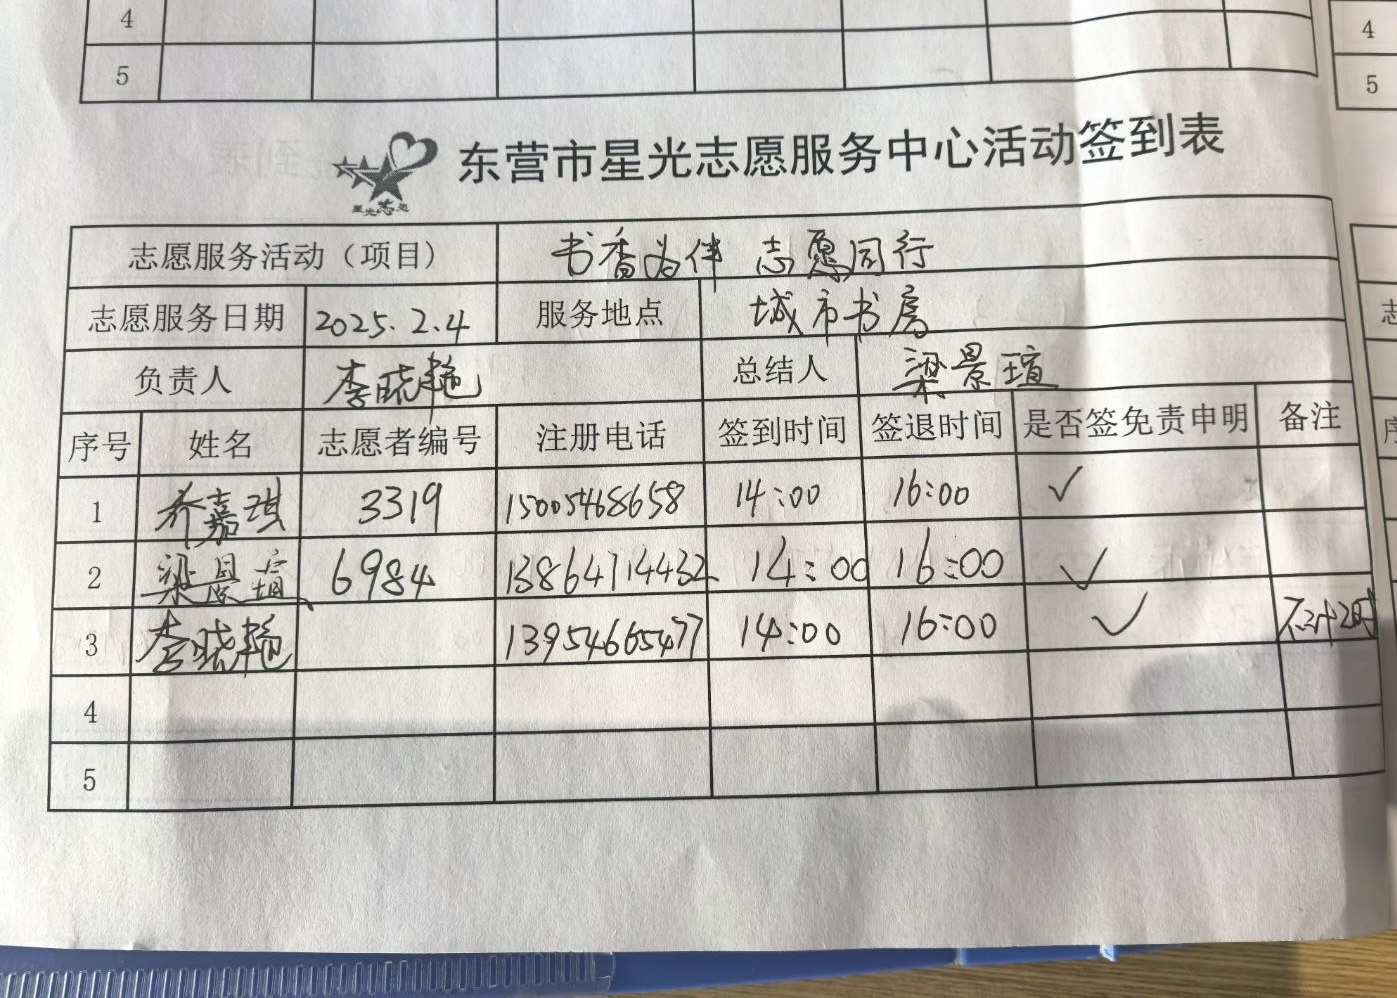 4
5
4
5
东营市星光志愿服务中心活动签到表
星光志愿
志愿服务活动（项目） 书香为伴 志愿同行
志愿服务日期 2025.2.4 服务地点 城市书房
负责人 李晓艳 总结人 梁景瑄
序号 姓名 志愿者编号 注册电话 签到时间 签退时间 是否签免责申明 备注
1 乔嘉琪 3319 15005468658 14:00 16:00 ✓
2 梁景瑄 6984 13864714432 14:00 16:00 ✓
3 李晓艳 13954665477 14:00 16:00 ✓ 不计时
4
5
志
序